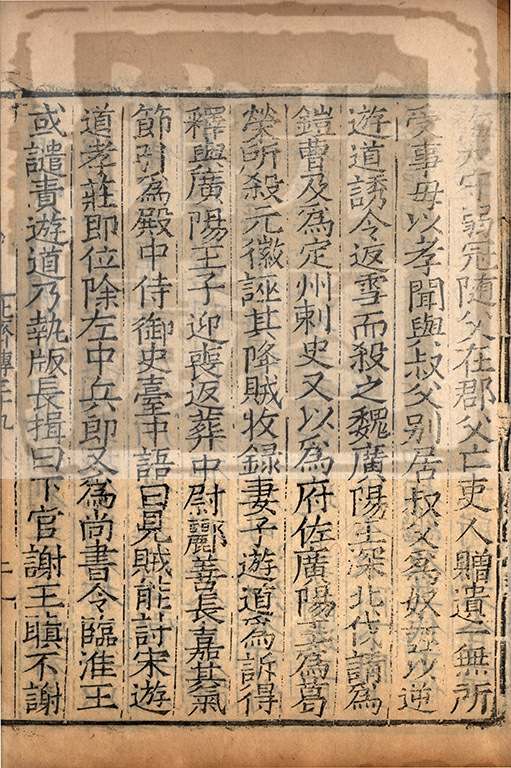 守弱冠隨父在郡父亡吏人贈遺一無所
受事母以孝聞與叔父别居叔父爲奴誣以逆
遊道誘令返雪而殺之魏廣陽王深北伐請爲
鎧曹及爲定州刺史又以爲府佐廣陽王爲葛
榮所殺元徽誣其降賊收録妻子遊道爲訴得
釋與廣陽王子迎喪返葬中尉酈善長嘉其氣
節引爲殿中侍御史臺中語曰見賊能討宋遊
道孝莊即位除左中兵郎又爲尚書令臨淮王
或譴責遊道乃執版長揖曰下官謝王瞋不謝